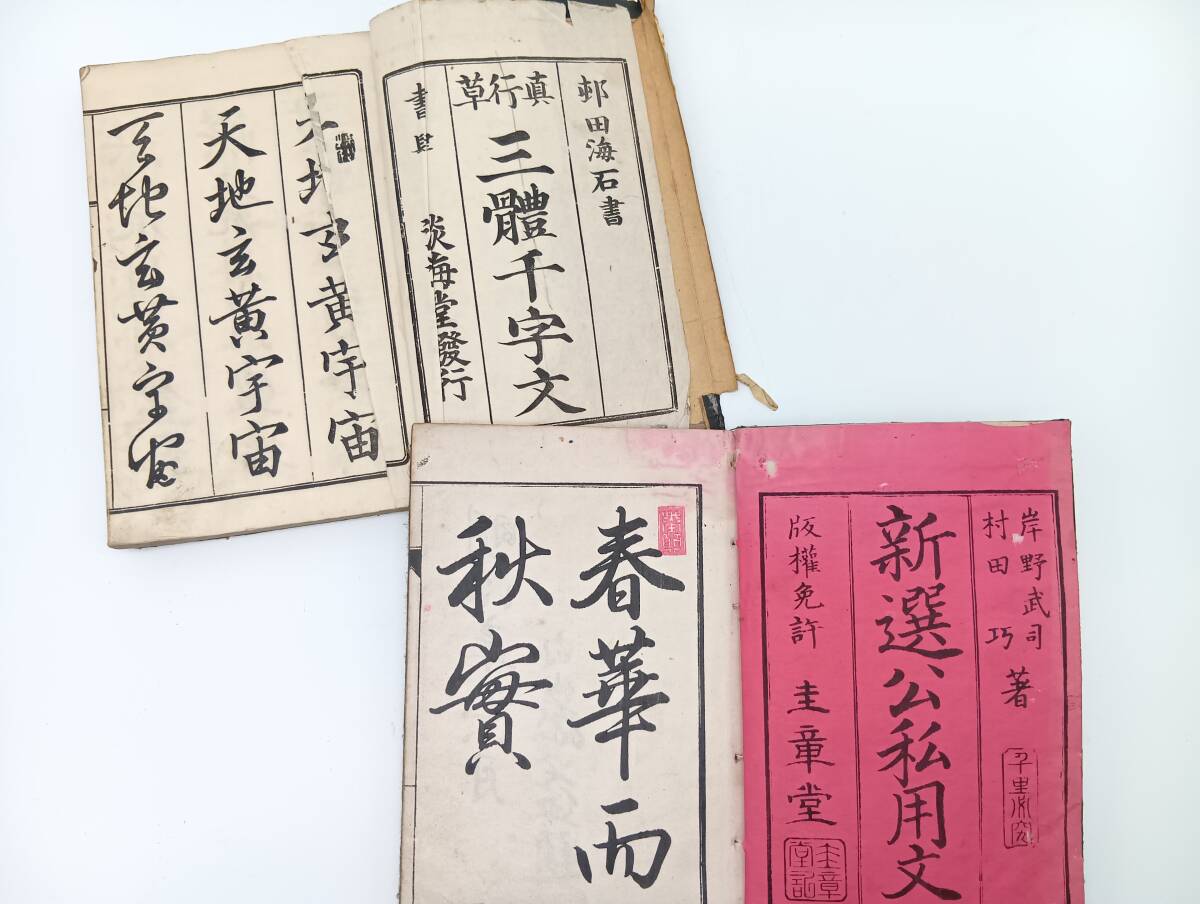 邨田海石書
真行草
三體千字文
書肆
淡海堂發行
地玄黃宇宙
天地玄黃宇宙
天地玄黃宇宙
岸野武司
村田巧
著
新選公私用文
版權免許
圭章堂
圭章堂記
春華而
秋實